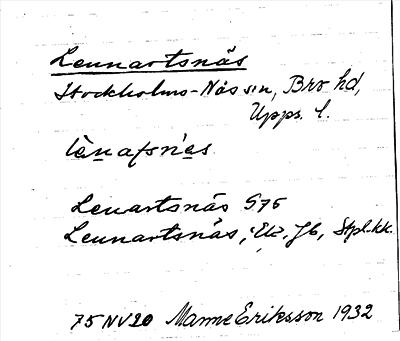 Lennartsnäs
Stockholms-Näs sn, Bro hd,
Upps. l.
lènafsn'es
Lenartsnäs S75
Lennartsnäs, Ek. Jb, Stpl. kk.
75 NV20 Manne Eriksson 1932